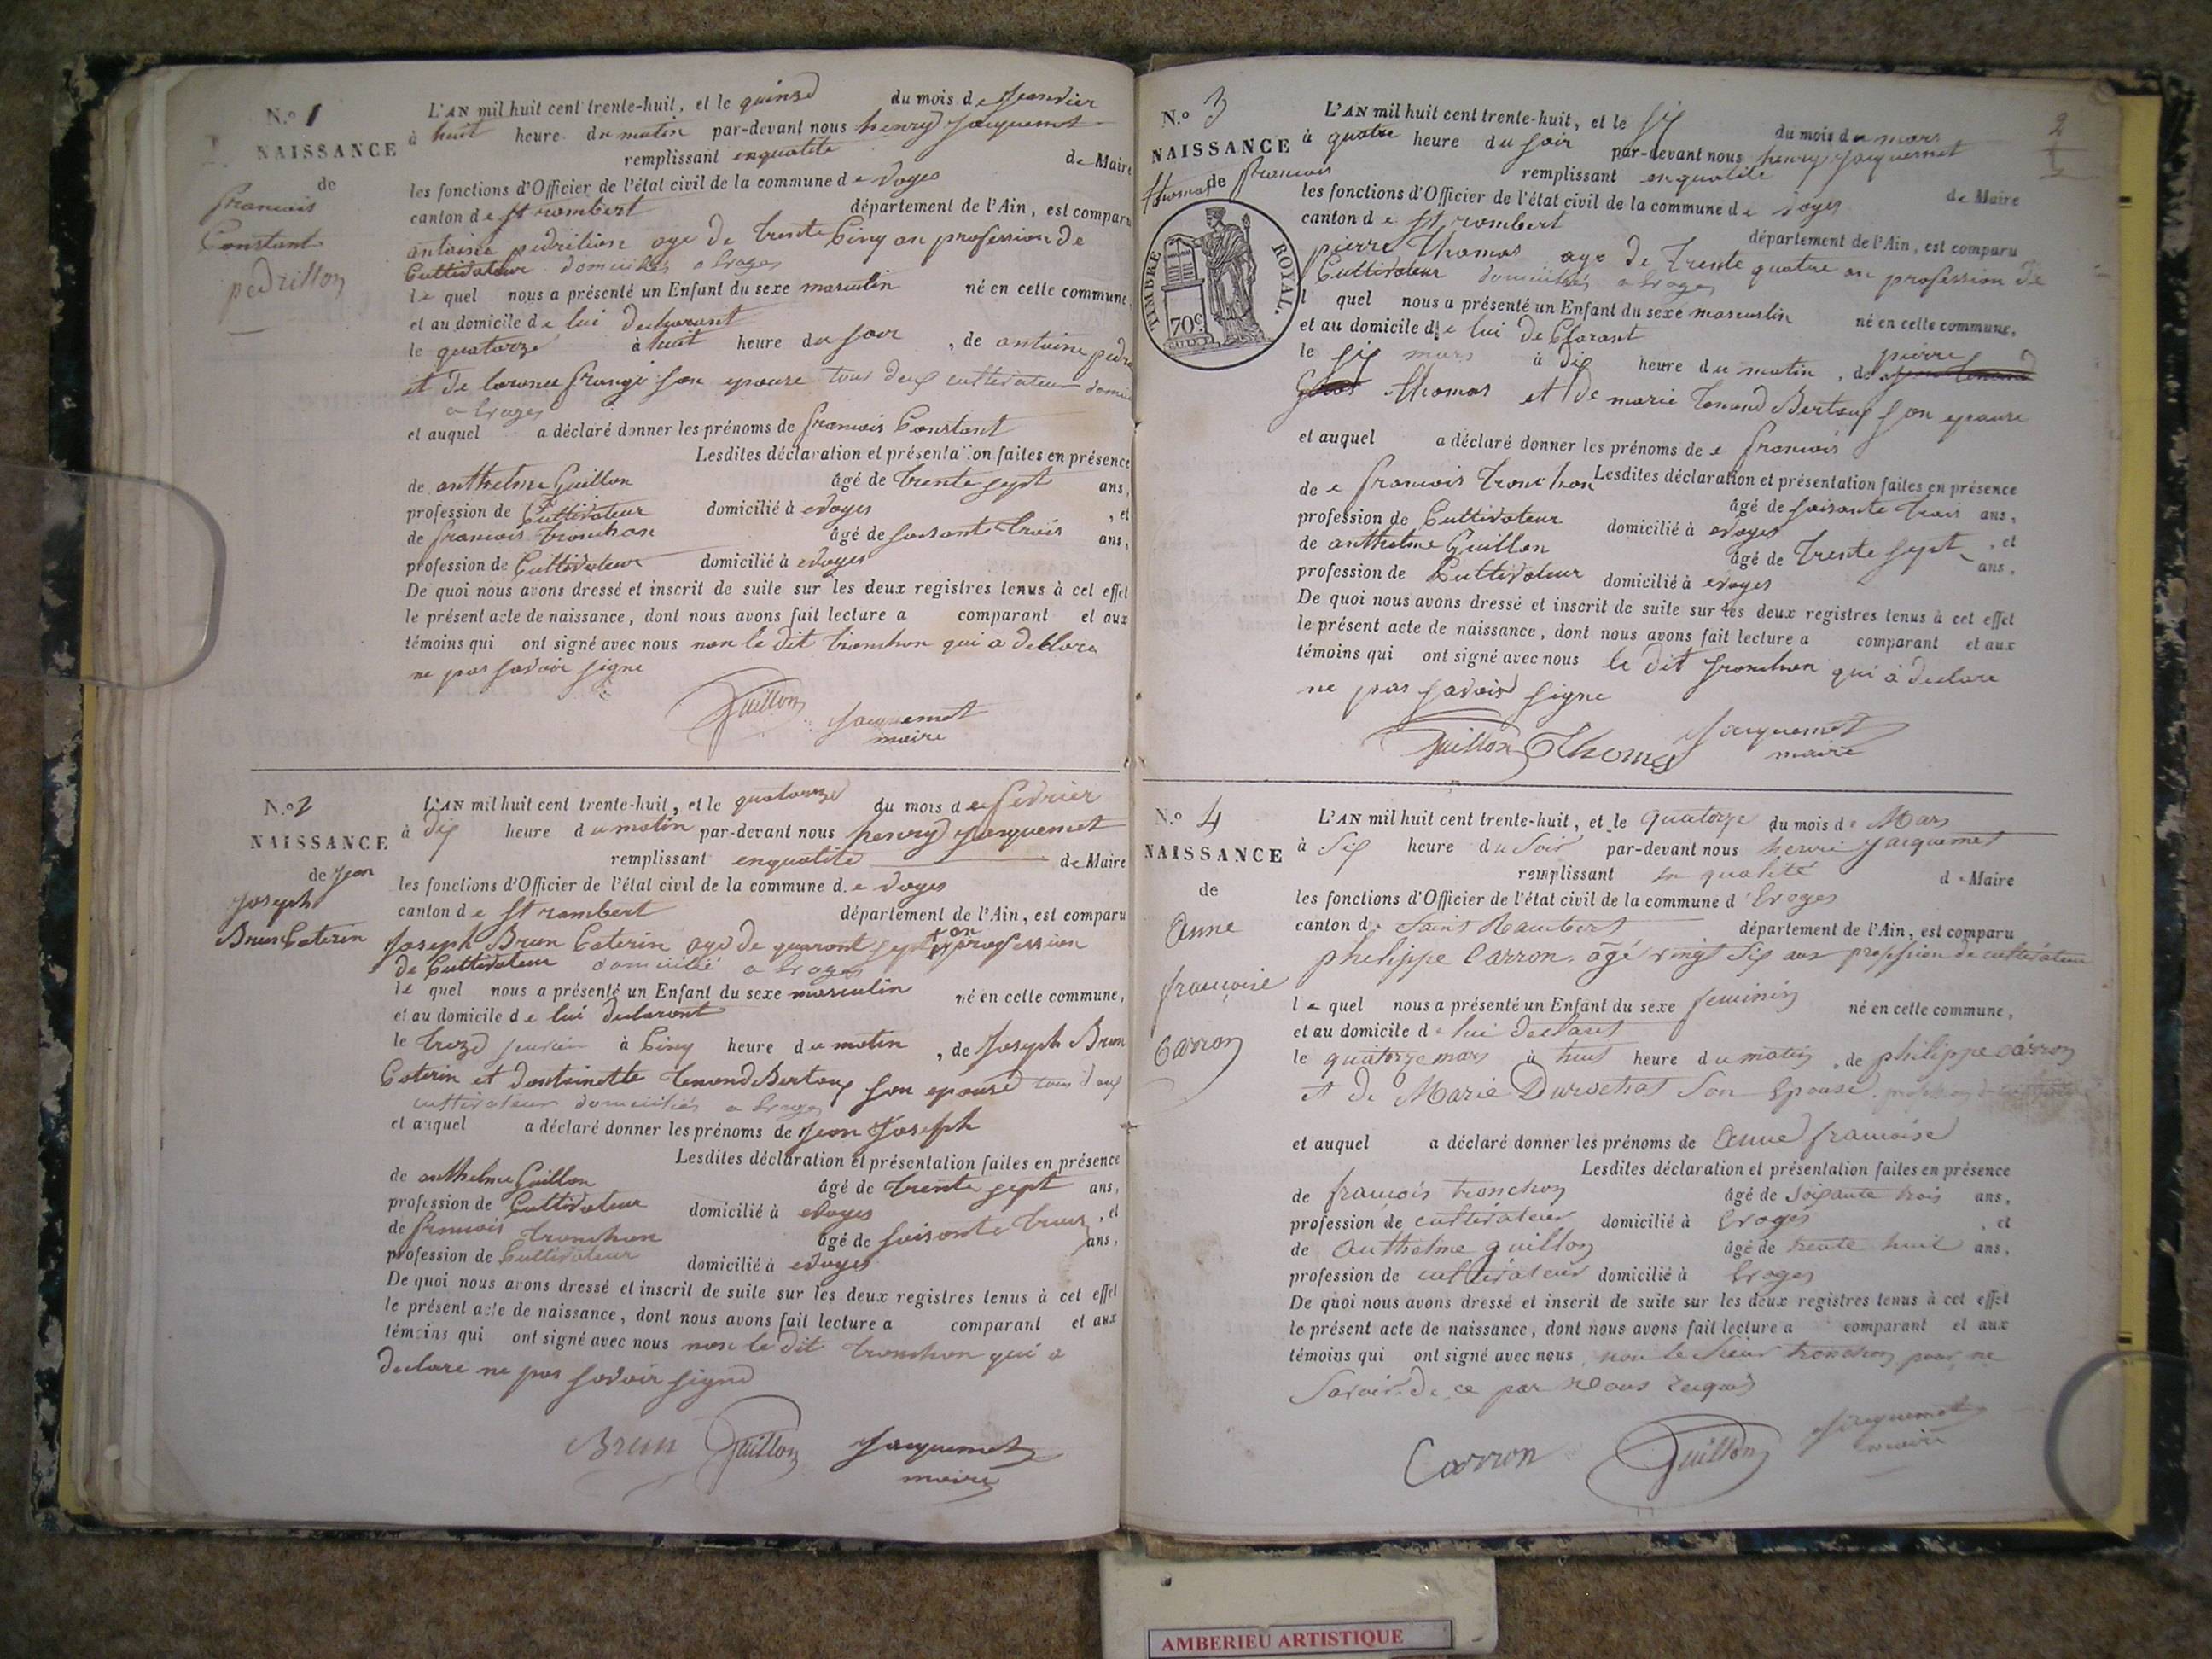 N.o 1
NAISSANCE
de
francois
Constant
pedrillon
L'AN mil huit cent trente-huit, et le quinze du mois de Jeanvier
à huit heure du matin par-devant nous henry Jacquemet
remplissant enqualité de Maire
les fonctions d'Officier de l'état civil de la commune de voges
canton de st rambert département de l'Ain, est comparu
antoine pedrillon age de trente cinq an profession de
Cultivateur domiciliés a Evoges
le quel nous a présenté un Enfant du sexe masculin né en cette commune,
et au domicile de lui declarant
le quatorze à huit heure du soir, de antoine pedri
et de son epouse tous deux cultivateur domici
a Evoges
et auquel a déclaré donner les prénoms de francois Constant
Lesdites déclaration et présentation faites en présence
de anthelme Guillon âgé de trente sept ans,
profession de Cultivateur domicilié à evoges, et
de francois tronchon âgé de soisante trois ans,
profession de Cultivateur domicilié à evoges
De quoi nous avons dressé et inscrit de suite sur les deux registres tenus à cet effet
le présent acte de naissance, dont nous avons fait lecture a comparant et aux
témoins qui ont signé avec nous non le dit tronchon qui a declare
ne pas savoir signe
Guillon Jacquemet
maire
N.o 2
NAISSANCE
de Jean
Joseph
Brun Caterin
L'AN mil huit cent trente-huit, et le quatorze du mois de fevrier
à dix heure du matin par-devant nous henry Jacquemet
remplissant enqualité de Maire
les fonctions d'Officier de l'état civil de la commune de voges
canton de st rambert département de l'Ain, est comparu
Joseph Brun Caterin age de quarant sept an profession
de Cultivateur domicilié a Evoges
le quel nous a présenté un Enfant du sexe masculin né en cette commune,
et au domicile de lui declarant
le treze à cinq heure du matin, de Joseph Brun
Caterin et dantoinette Tenand Bertoux son epouse tous deux
cultivateur domiciliés a Evoges
et auquel a déclaré donner les prénoms de Jean Joseph
Lesdites déclaration et présentation faites en présence
de anthelme Guillon âgé de trente sept ans,
profession de Cultivateur domicilié à evoges, et
de francois tronchon âgé de soisante trois ans,
profession de Cultivateur domicilié à evoges
De quoi nous avons dressé et inscrit de suite sur les deux registres tenus à cet effet
le présent acte de naissance, dont nous avons fait lecture a comparant et aux
témoins qui ont signé avec nous non le dit tronchon qui a
declare ne pas savoir signe
Brun Guillon Jacquemet
maire
2
N.o 3
NAISSANCE
de francois
thomas
TIMBRE ROYAL.
70c
L'AN mil huit cent trente-huit, et le six du mois du mars
à quatre heure du soir par-devant nous henry Jacquemet
remplissant enqualité de Maire
les fonctions d'Officier de l'état civil de la commune de voges
canton de st rombert département de l'Ain, est comparu
pierre Thomas age de trente quatre an profession de
Cultivateur domiciliés a Evoges
l quel nous a présenté un Enfant du sexe masculin né en cette commune,
et au domicile de lui declarant
le six mars à dix heure du matin, de pierre
thomas et de marie Tenand Bertoux son epouse
et auquel a déclaré donner les prénoms de francois
Lesdites déclaration et présentation faites en présence
de francois tronchon âgé de soisante trois ans,
profession de Cultivateur domicilié à evoges, et
de anthelme Guillon âgé de trente sept ans,
profession de Cultivateur domicilié à evoges
De quoi nous avons dressé et inscrit de suite sur les deux registres tenus à cet effet
le présent acte de naissance, dont nous avons fait lecture a comparant et aux
témoins qui ont signé avec nous le dit tronchon qui a declare
ne pas savoir signe
Guillon Thomas Jacquemet
maire
N.o 4
NAISSANCE
de
Anne
françoise
Carron
L'AN mil huit cent trente-huit, et le quatorze du mois de Mars
à Six heure du Soir par-devant nous henri Jacquemet
remplissant en qualité de Maire
les fonctions d'Officier de l'état civil de la commune d'Evoges
canton de Saint Rambert département de l'Ain, est comparu
philippe Carron âgé vingt six ans profession de cultivateur
le quel nous a présenté un Enfant du sexe feminin né en cette commune,
et au domicile de lui declarant
le quatorze mars à huit heure du matin, de philippe carron
et de Marie Durochat Son Epouse
et auquel a déclaré donner les prénoms de Anne francoise
Lesdites déclaration et présentation faites en présence
de françois tronchon âgé de soixante trois ans,
profession de cultivateur domicilié à Evoges, et
de Anthelme guillon âgé de trente huit ans,
profession de cultivateur domicilié à Evoges
De quoi nous avons dressé et inscrit de suite sur les deux registres tenus à cet effet
le présent acte de naissance, dont nous avons fait lecture a comparant et aux
témoins qui ont signé avec nous non le Sieur tronchon pour ne
Savoir de ce par Nous requis
Carron Guillon Jacquemet
maire
AMBERIEU ARTISTIQUE